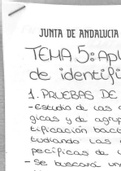 JUNTA DE ANDALUCIA
TEMA 5: Apl
de identifi
1. PRUEBAS DE
-Estudio de las c
gicas y de agrup
tificación bact
tudiando las c
pecíficas de c
- Se buscará un